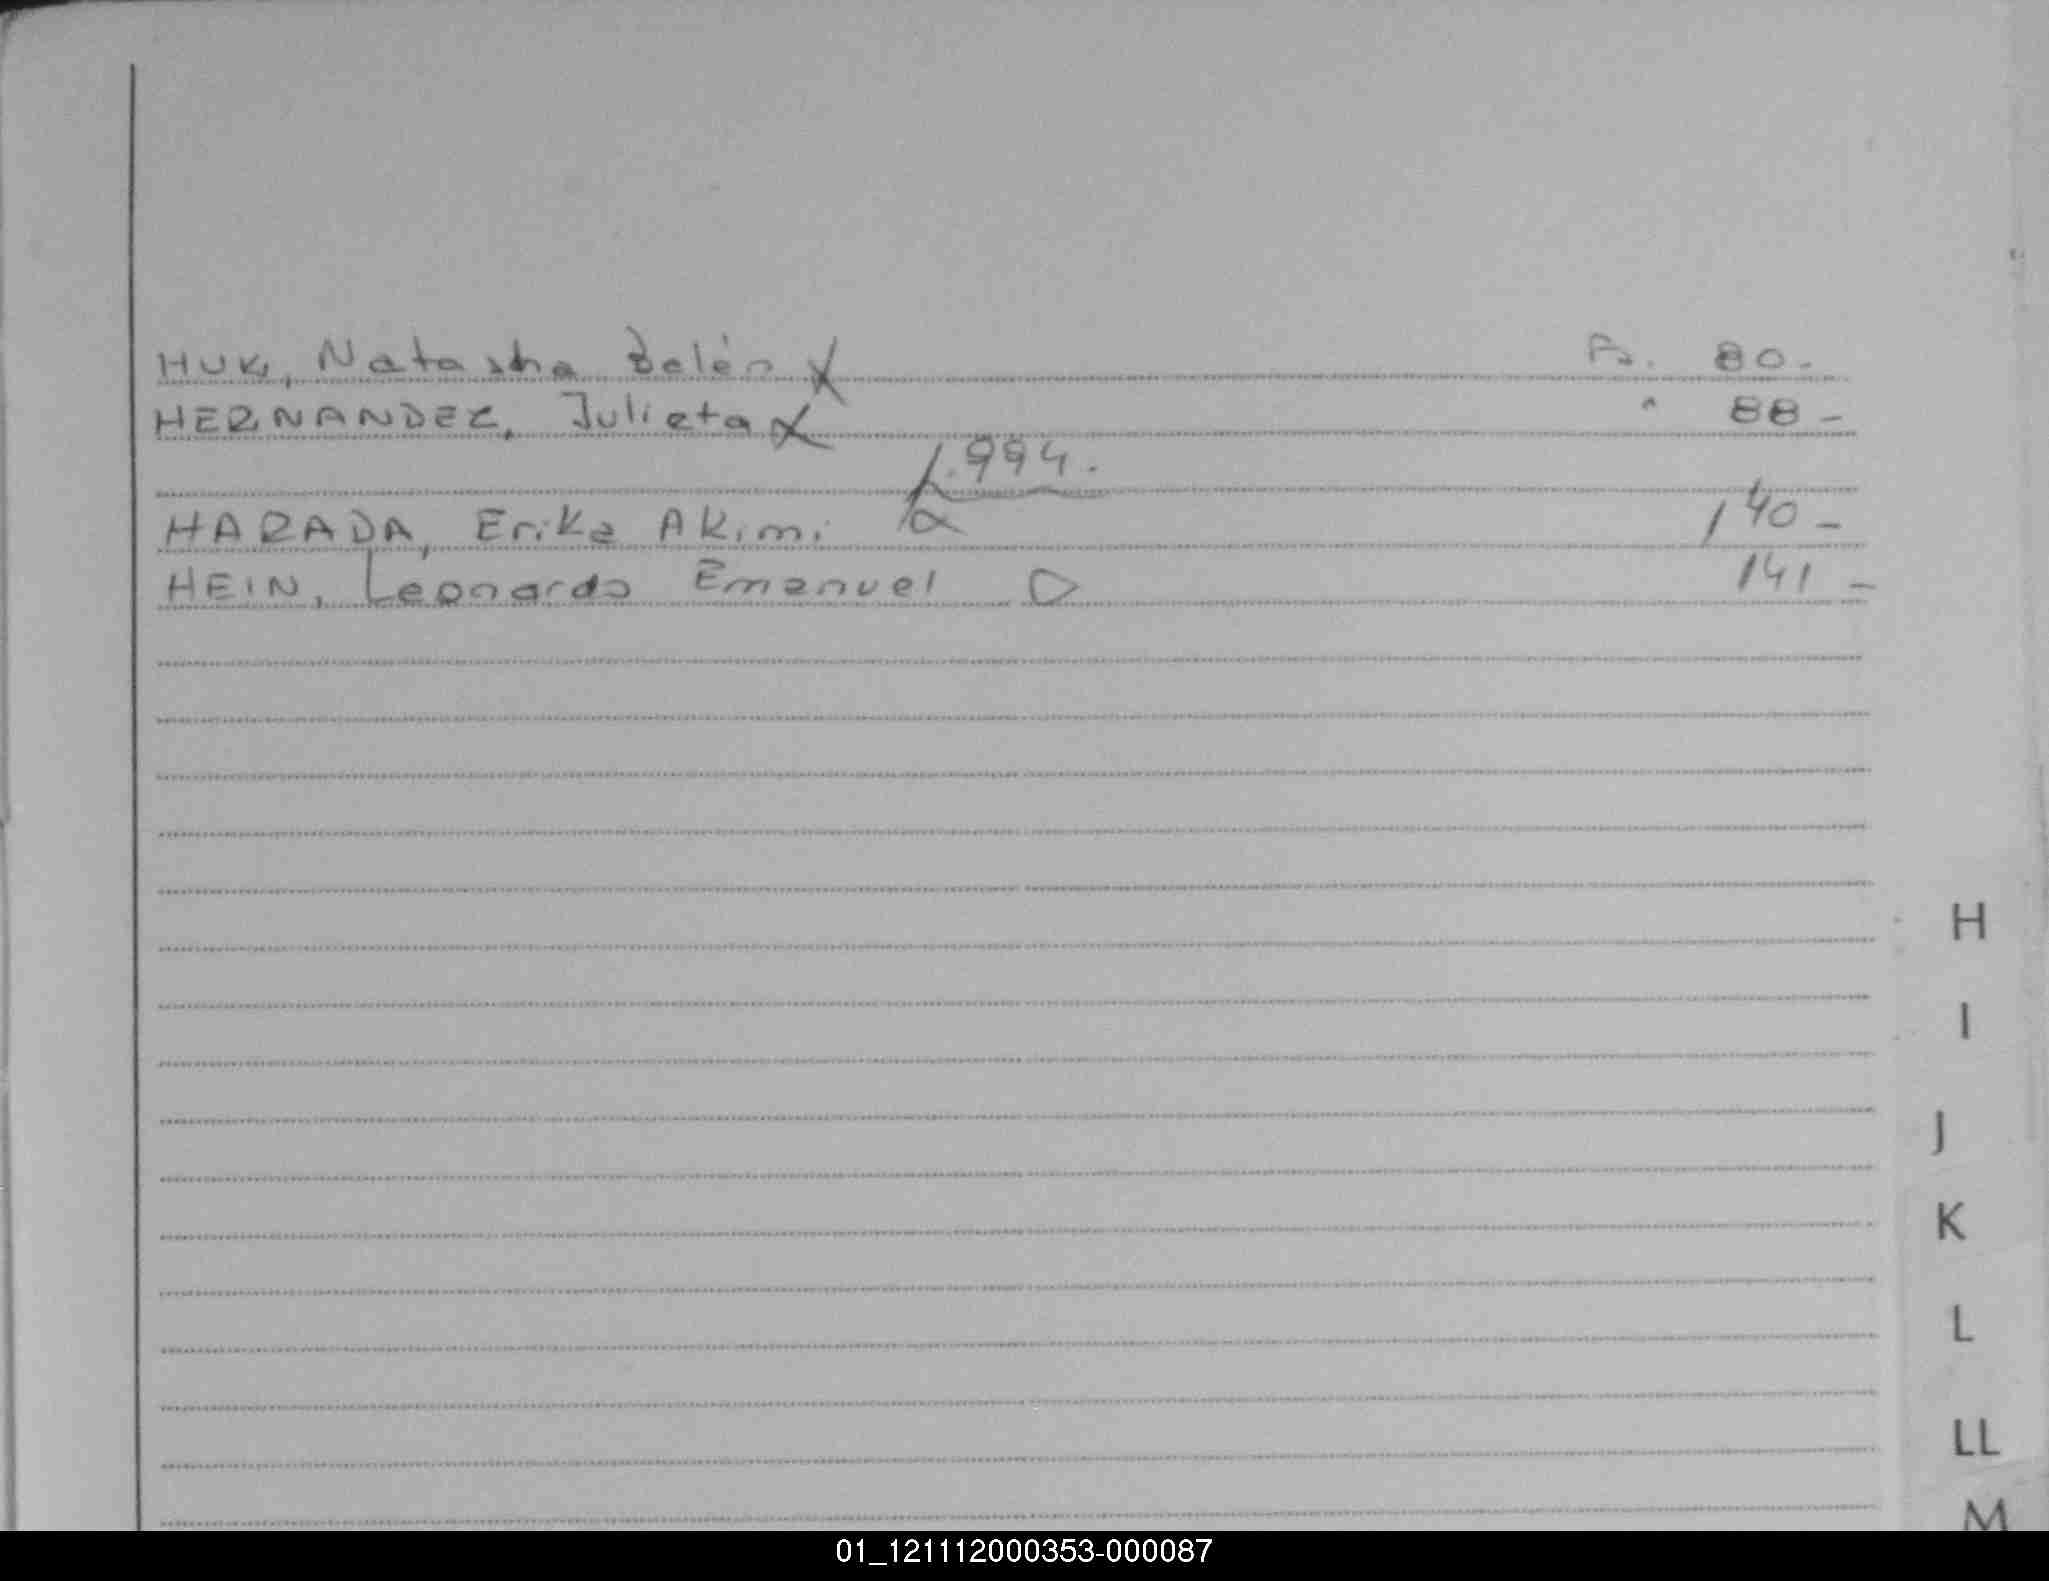 HUK, Natasha Belén X P. 80.-
HERNANDEZ, Julieta X " 88-
1.994.
HARADA, Erika Akimi 140-
HEIN, Leonardo Emanuel 141-
H
I
J
K
L
LL
M
01_121112000353-000087